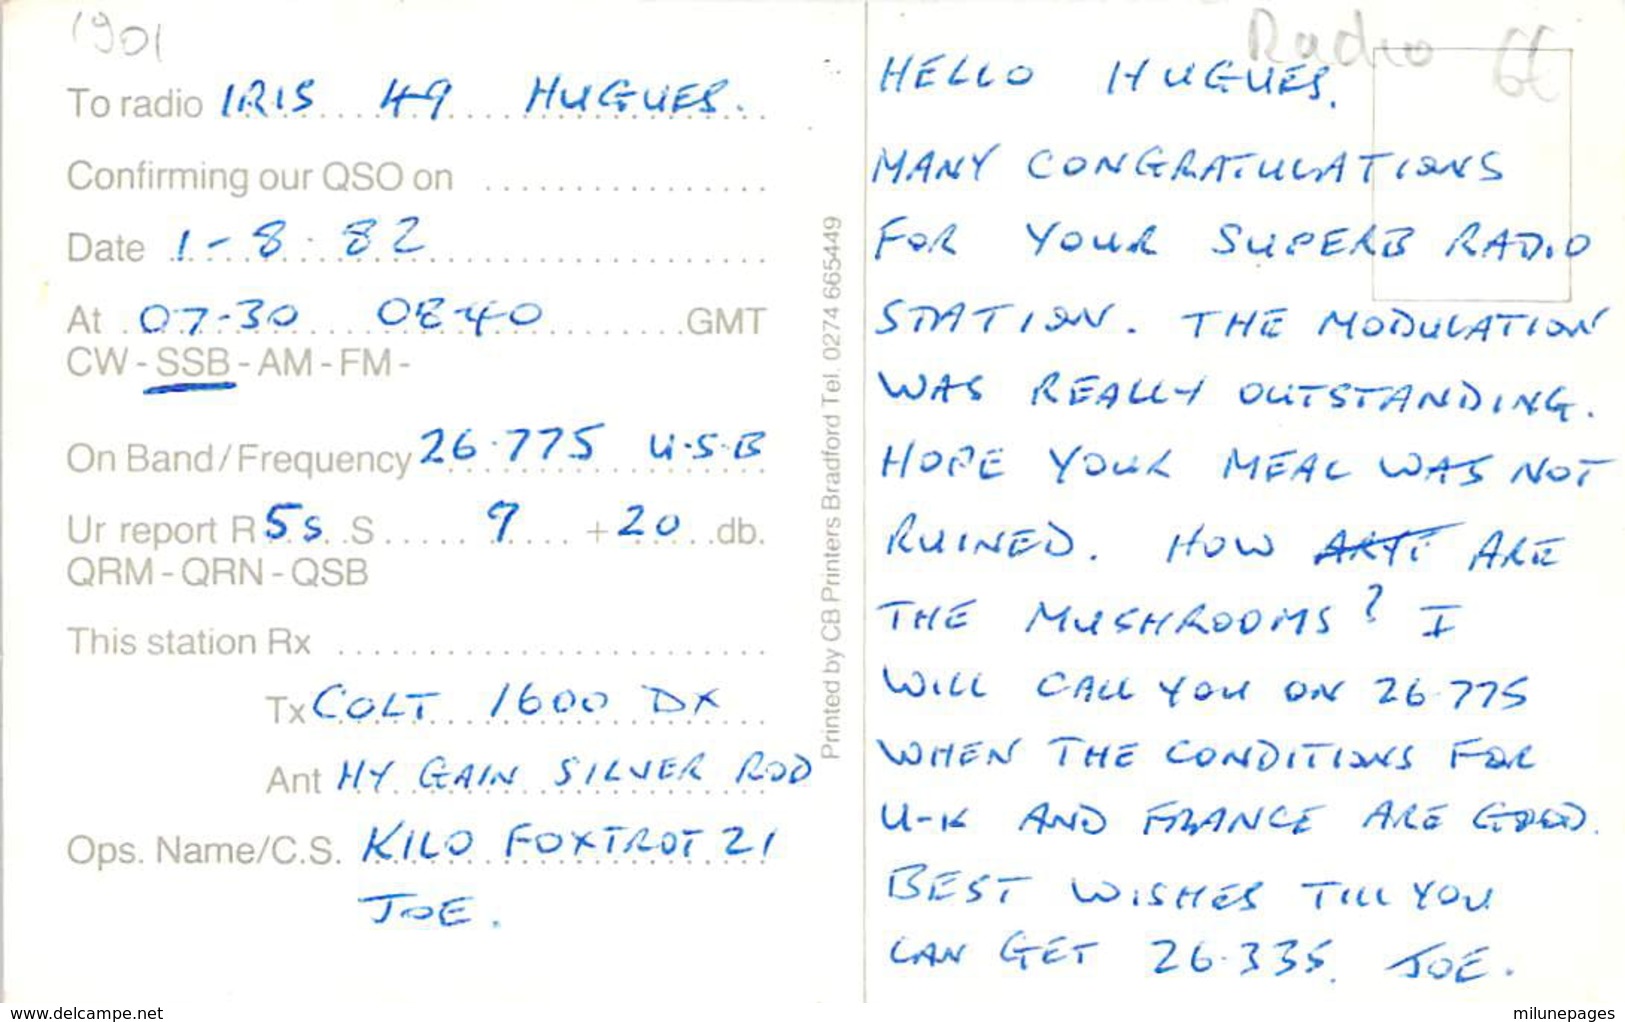 1901
To radio IRIS 49 HUGUES.
Confirming our QSO on
Date 1-8-82
At 07-30 0840 GMT
CW - SSB - AM - FM -
On Band/Frequency 26.775 U.S.B
Ur report R 5s S 9 + 20 db.
QRM - QRN - QSB
This station Rx
Tx COLT 1600 DX
Ant HY GAIN SILVER ROD
Ops. Name/C.S. KILO FOXTROT 21
JOE.
Printed by CB Printers Bradford Tel. 0274 665449
Radio 6€
HELLO HUGUES.
MANY CONGRATULATIONS
FOR YOUR SUPERB RADIO
STATION. THE MODULATION
WAS REALLY OUTSTANDING.
HOPE YOUR MEAL WAS NOT
RUINED. HOW ARE
THE MUSHROOMS? I
WILL CALL YOU ON 26.775
WHEN THE CONDITIONS FOR
U-K AND FRANCE ARE GOOD.
BEST WISHES TILL YOU
CAN GET 26.335. JOE.
www.delcampe.net
milunepages